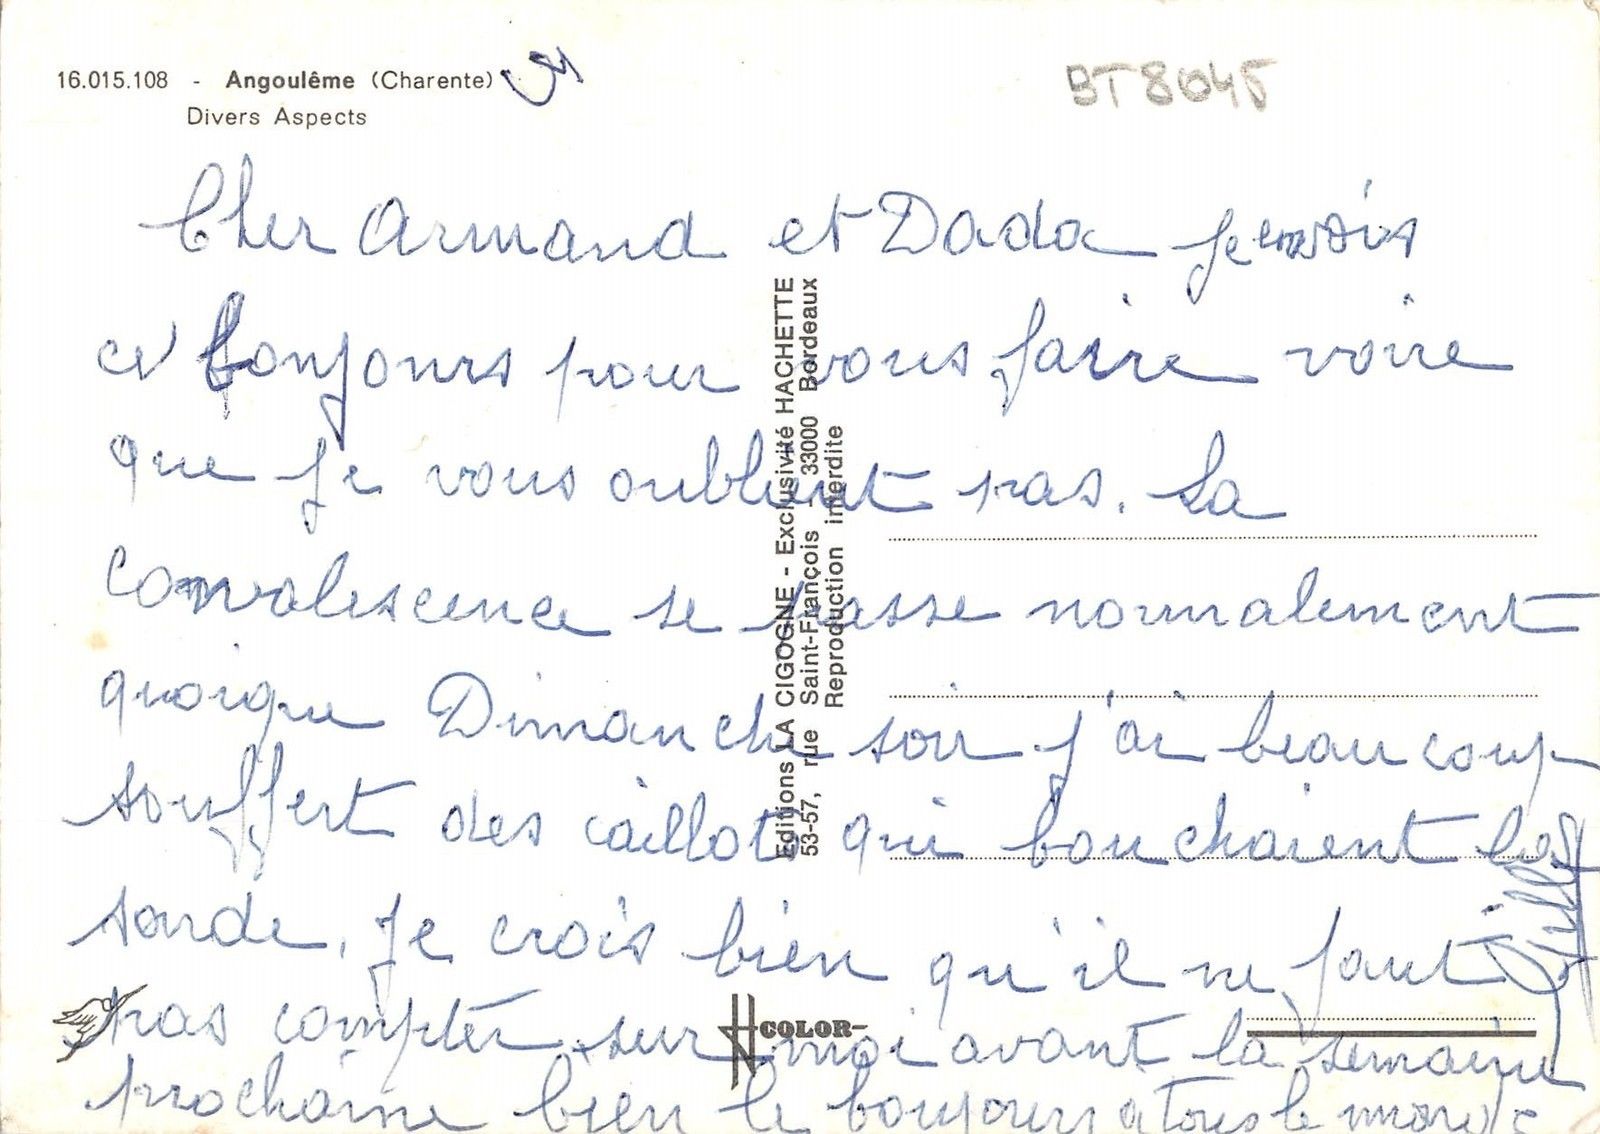 16.015.108 - Angoulême (Charente)
Divers Aspects
BT8045
Cher Armand et Dada Je envois
ce bonjours pour vous faire voire
que je vous oublient pas. La
convalescence se passe normalement
quoique Dimanche soir j'ai beaucoup
souffert des caillots qui bouchaient la
sonde. Je crois bien qu'il ne faut
pas compter sur moi avant la semaine
prochaine bien le bonjours a tous le monde
Editions LA CIGOGNE - Exclusivité HACHETTE
53-57, rue Saint-François - 33000 Bordeaux
Reproduction interdite
COLOR